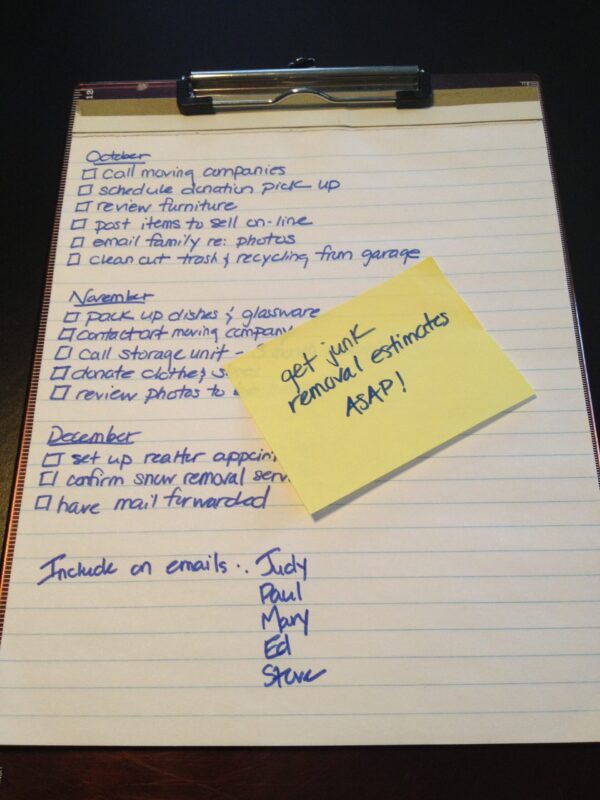 October
call moving companies
schedule donation pick up
review furniture
post items to sell on-line
email family re: photos
clean out trash & recycling from garage
November
pack up dishes & glassware
contact art moving company
call storage unit -
donate clothes
review photos to be
get junk
removal estimates
ASAP!
December
set up realtor
confirm snow removal
have mail forwarded
Include on emails..
Judy
Paul
Mary
Ed
Steve